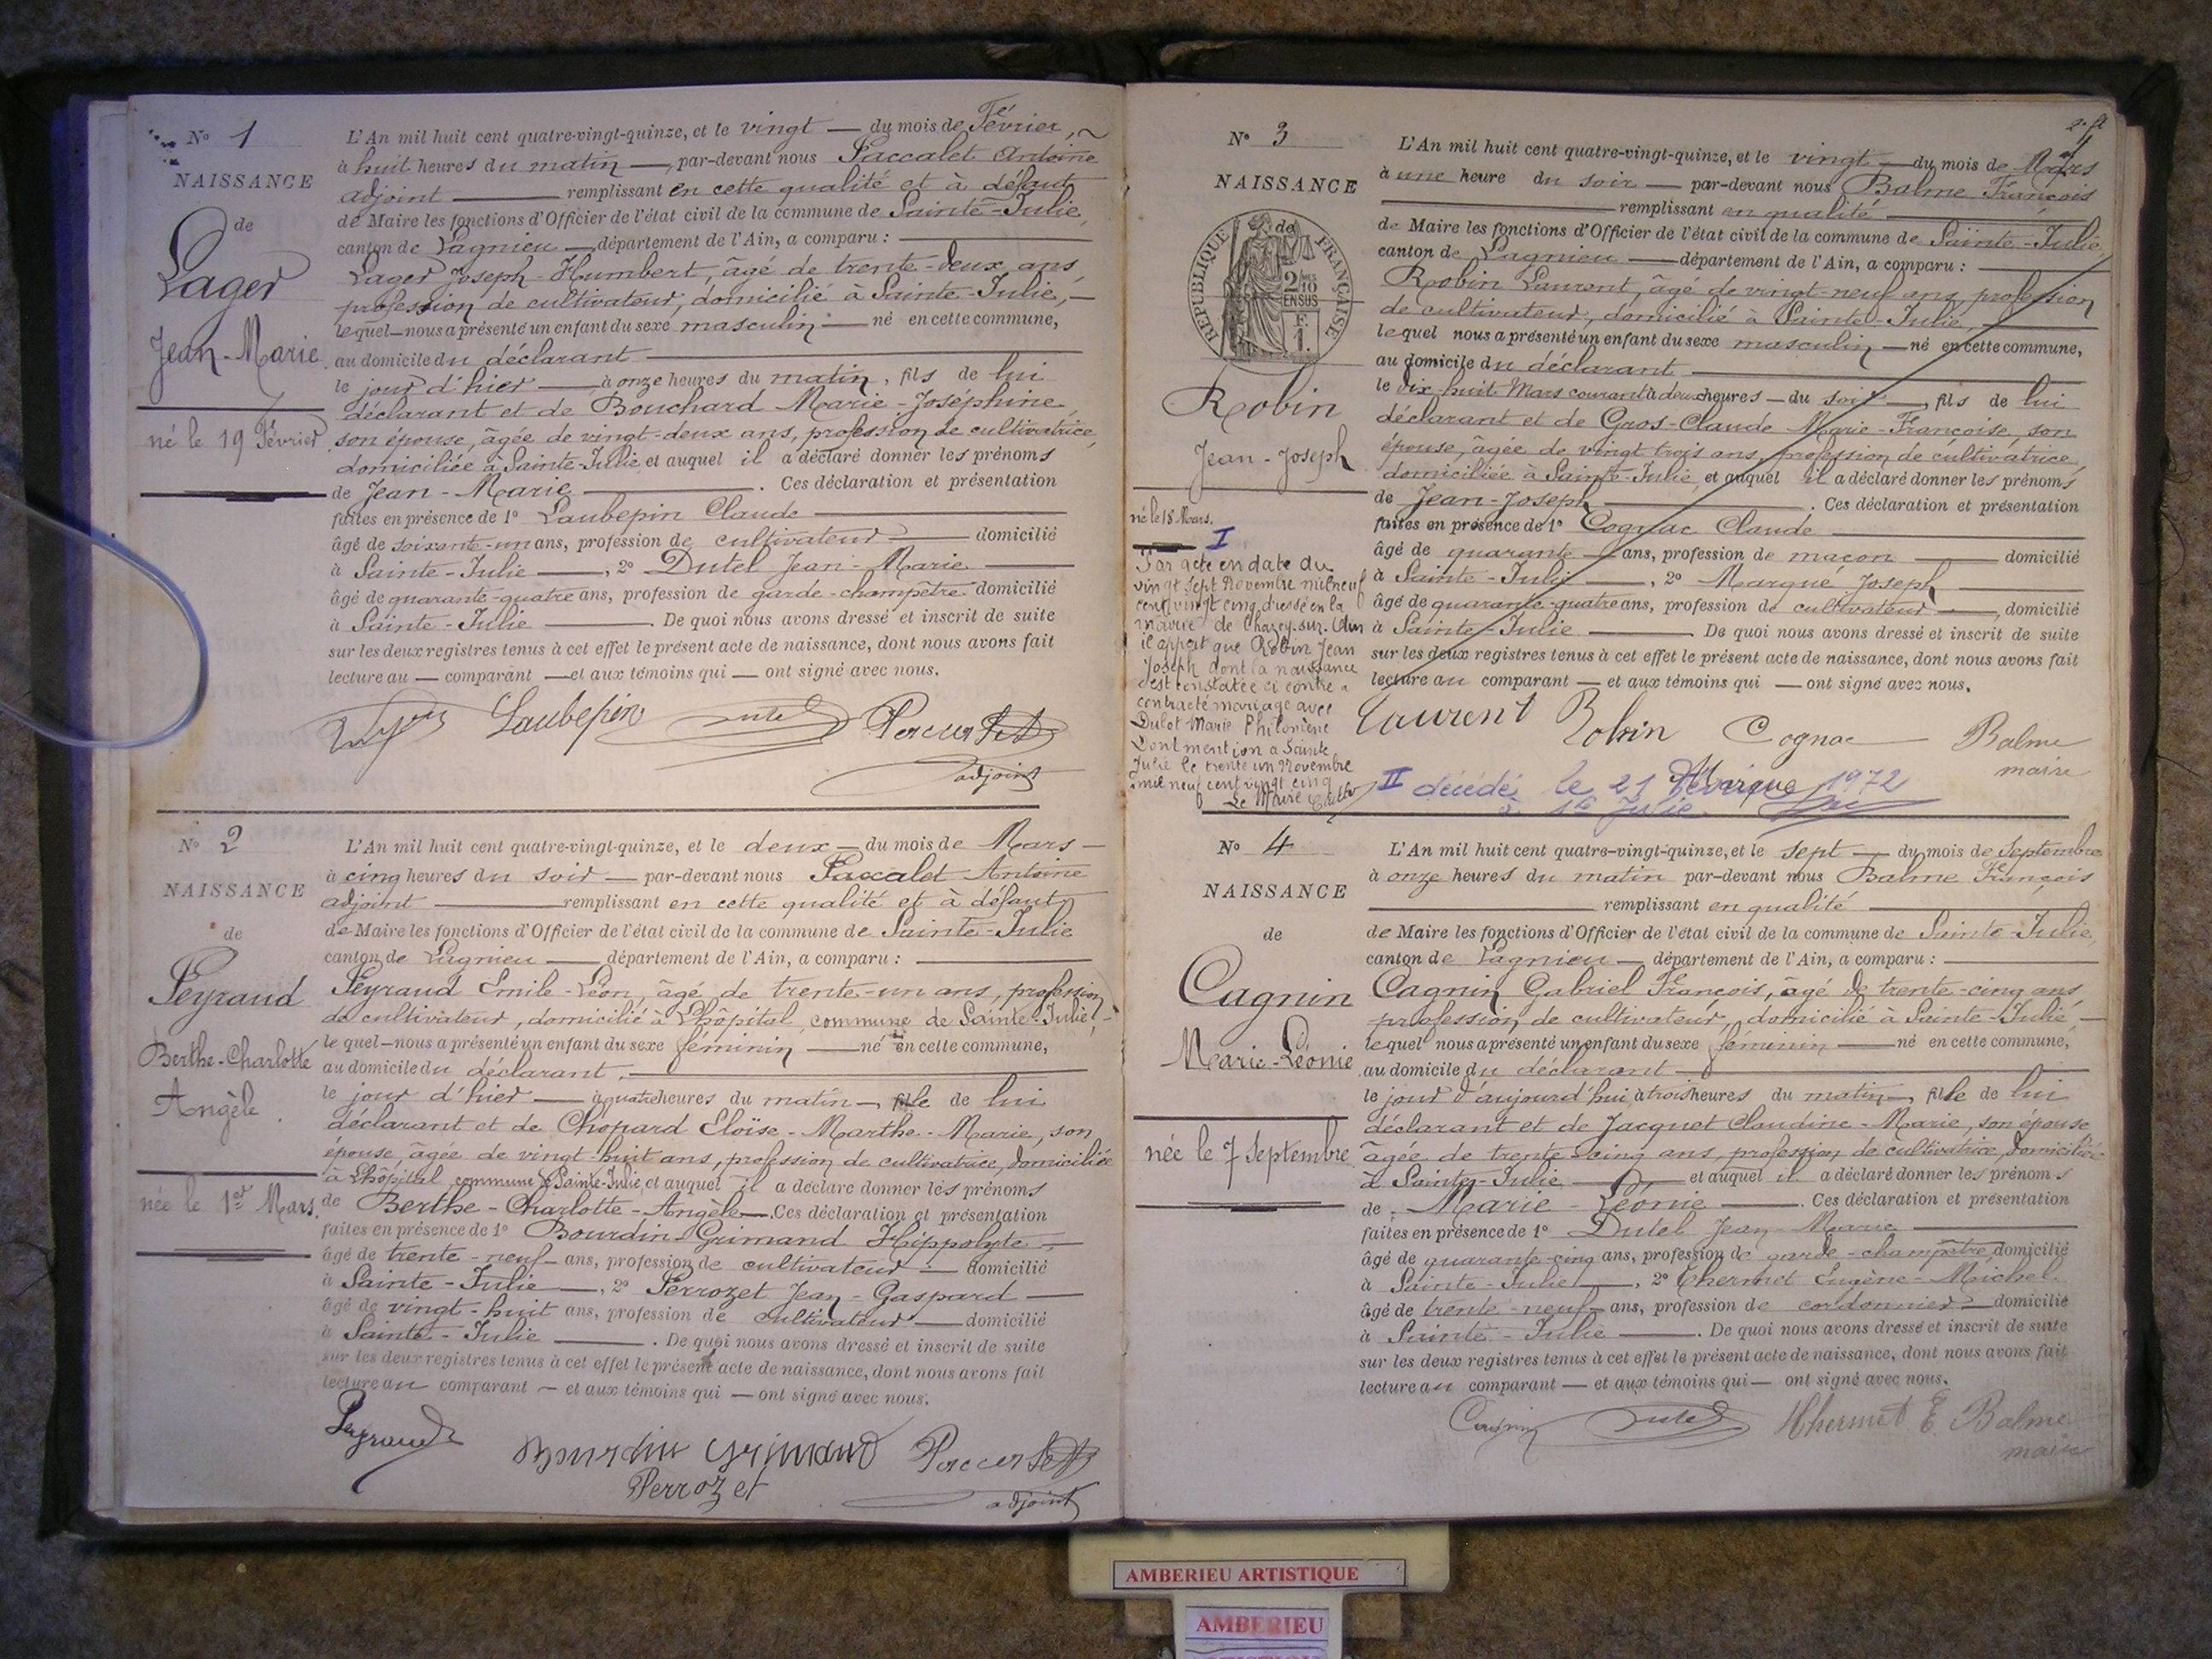 N° 1
NAISSANCE
de
Lager
Jean-Marie
né le 19 Février
L'An mil huit cent quatre-vingt-quinze, et le vingt — du mois de Février,
à huit heures du matin —, par-devant nous Paccalet Antoine
adjoint — remplissant en cette qualité et à défaut
de Maire les fonctions d'Officier de l'état civil de la commune de Sainte-Julie,
canton de Lagnieu — département de l'Ain, a comparu :
Lager Joseph-Humbert, âgé de trente-deux ans,
profession de cultivateur, domicilié à Sainte-Julie, —
lequel — nous a présenté un enfant du sexe masculin — né en cette commune,
au domicile du déclarant —
le jour d'hier — à onze heures du matin, fils de lui
déclarant et de Bouchard Marie-Joséphine,
son épouse, âgée de vingt-deux ans, profession de cultivatrice,
domiciliée à Sainte-Julie, et auquel il a déclaré donner les prénoms
de Jean-Marie —. Ces déclaration et présentation
faites en présence de 1° Laubepin Claude —
âgé de soixante-un ans, profession de cultivateur — domicilié
à Sainte-Julie —, 2° Dutel Jean-Marie —
âgé de quarante-quatre ans, profession de garde-champêtre domicilié
à Sainte-Julie —. De quoi nous avons dressé et inscrit de suite
sur les deux registres tenus à cet effet le présent acte de naissance, dont nous avons fait
lecture au — comparant — et aux témoins qui — ont signé avec nous.
Laubepin Dutel
adjoint
N° 2
NAISSANCE
de
Peyraud
Berthe-Charlotte
Angèle
née le 1er Mars.
L'An mil huit cent quatre-vingt-quinze, et le deux — du mois de Mars —
à cinq heures du soir — par-devant nous Paccalet Antoine
adjoint — remplissant en cette qualité et à défaut
de Maire les fonctions d'Officier de l'état civil de la commune de Sainte-Julie
canton de Lagnieu — département de l'Ain, a comparu :
Peyraud Emile-Léon, âgé de trente-un ans, profession
de cultivateur, domicilié à Lhôpital, commune de Sainte-Julie, —
lequel — nous a présenté un enfant du sexe féminin — né en cette commune,
au domicile du déclarant, —
le jour d'hier — à quatre heures du matin —, fille de lui
déclarant et de Chopard Eloïse-Marthe-Marie, son
épouse, âgée de vingt-huit ans, profession de cultivatrice, domiciliée
à Lhôpital, commune de Sainte-Julie, et auquel il a déclaré donner les prénoms
de Berthe-Charlotte-Angèle —. Ces déclaration et présentation
faites en présence de 1° Bourdin-Grimand Hippolyte —
âgé de trente-neuf — ans, profession de cultivateur — domicilié
à Sainte-Julie —, 2° Perrozet Jean-Gaspard —
âgé de vingt-huit ans, profession de cultivateur — domicilié
à Sainte-Julie —. De quoi nous avons dressé et inscrit de suite
sur les deux registres tenus à cet effet le présent acte de naissance, dont nous avons fait
lecture au comparant — et aux témoins qui — ont signé avec nous.
Peyraud
Bourdin Grimand
Perrozet
adjoint
N° 3
NAISSANCE
de
RÉPUBLIQUE FRANÇAISE
2/10
EN SUS
F.
1.
Robin
Jean-Joseph
né le 18 Mars.
I
Par acte en date du
vingt sept Novembre mil neuf
cent vingt cinq dressé en la
mairie de Chazey-sur-Ain
il appert que Robin Jean
Joseph dont la naissance
est constatée ci contre a
contracté mariage avec
Dulot Marie Philomène
Dont mention a Sainte
Julie le trente un Novembre
mil neuf cent vingt cinq
Le Maire
L'An mil huit cent quatre-vingt-quinze, et le vingt — du mois de Mars
à une heure du soir — par-devant nous Balme François
— remplissant en qualité —
de Maire les fonctions d'Officier de l'état civil de la commune de Sainte-Julie,
canton de Lagnieu — département de l'Ain, a comparu :
Robin Laurent, âgé de vingt-neuf ans, profession
de cultivateur, domicilié à Sainte-Julie, —
lequel nous a présenté un enfant du sexe masculin — né en cette commune,
au domicile du déclarant —
le dix-huit Mars courant à deux heures — du soir —, fils de lui
déclarant et de Gros-Claude Marie-Françoise, son
épouse, âgée de vingt trois ans, profession de cultivatrice,
domiciliée à Sainte-Julie, et auquel il a déclaré donner les prénoms
de Jean-Joseph —. Ces déclaration et présentation
faites en présence de 1° Cognac Claude —
âgé de quarante — ans, profession de maçon — domicilié
à Sainte-Julie —, 2° Marque Joseph —
âgé de quarante-quatre ans, profession de cultivateur —, domicilié
à Sainte-Julie — De quoi nous avons dressé et inscrit de suite
sur les deux registres tenus à cet effet le présent acte de naissance, dont nous avons fait
lecture au comparant — et aux témoins qui — ont signé avec nous.
Laurent Robin Cognac Balme
maire
Marque
II décédé le 21 1972
à Ste Julie.
N° 4
NAISSANCE
de
Cagnin
Marie-Léonie
née le 7 Septembre
L'An mil huit cent quatre-vingt-quinze, et le sept — du mois de Septembre
à onze heures du matin par-devant nous Balme François
— remplissant en qualité —
de Maire les fonctions d'Officier de l'état civil de la commune de Sainte-Julie,
canton de Lagnieu — département de l'Ain, a comparu :
Cagnin Gabriel François, âgé de trente-cinq ans,
profession de cultivateur, domicilié à Sainte-Julie, —
lequel nous a présenté un enfant du sexe féminin — né en cette commune,
au domicile du déclarant —
le jour d'aujourd'hui, à trois heures du matin —, fille de lui
déclarant et de Jacquet Claudine-Marie, son épouse
âgée de trente-cinq ans, profession de cultivatrice, domiciliée
à Sainte-Julie — et auquel il a déclaré donner les prénoms
de Marie-Léonie —. Ces déclaration et présentation
faites en présence de 1° Dutel Jean-Marie —
âgé de quarante-cinq ans, profession de garde-champêtre, domicilié
à Sainte-Julie —, 2° Thermet Eugène-Michel
âgé de trente-neuf — ans, profession de cordonnier — domicilié
à Sainte-Julie —. De quoi nous avons dressé et inscrit de suite
sur les deux registres tenus à cet effet le présent acte de naissance, dont nous avons fait
lecture au comparant — et aux témoins qui — ont signé avec nous.
Cagnin Dutel Thermet E Balme
maire
AMBERIEU ARTISTIQUE
AMBERIEU